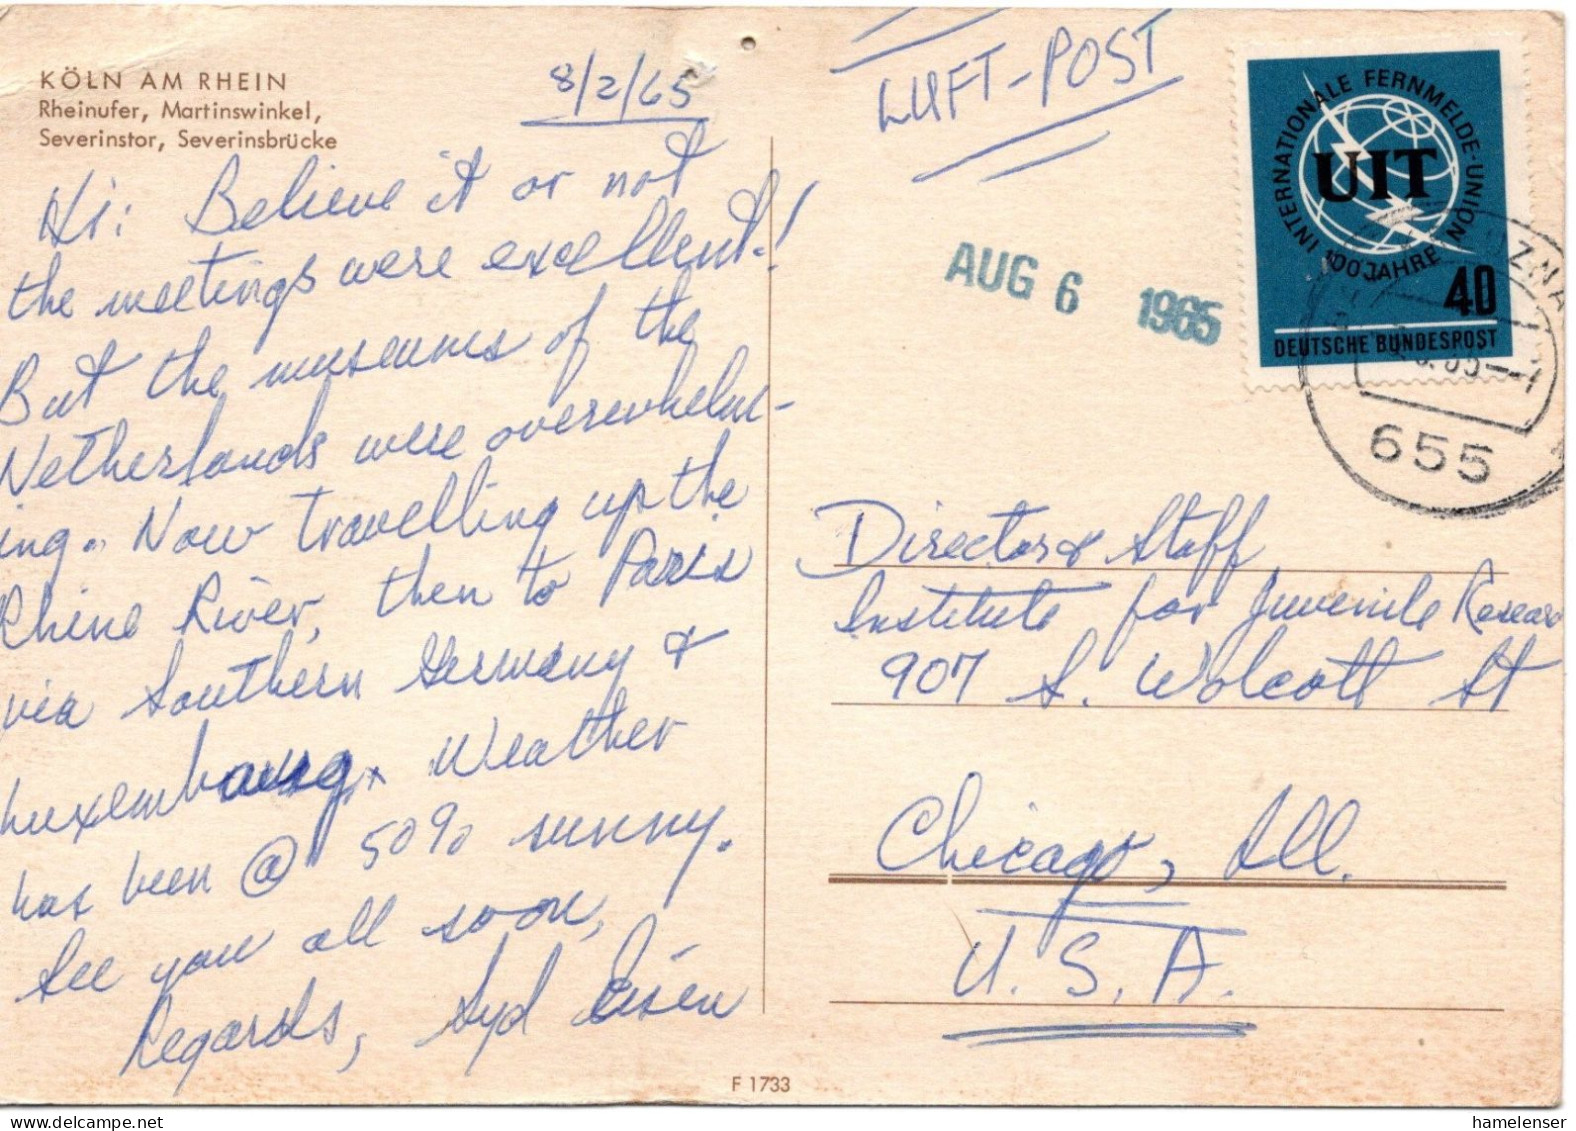 KÖLN AM RHEIN
Rheinufer, Martinswinkel,
Severinstor, Severinsbrücke
8/2/65
Hi: Believe it or not
the meetings were excellent!
But the museums of the
Netherlands were overwhelm-
ing. Now travelling up the
Rhine River, then to Paris
via Southern Germany &
Luxembourg. Weather
has been @ 50% sunny.
See you all soon,
Regards, Syd Eisen
LUFT-POST
INTERNATIONALE FERNMELDE-UNION
100 JAHRE
UIT
40
DEUTSCHE BUNDESPOST
AUG 6 1965
655
Director & Staff
Institute for Juvenile Research
907 S. Wolcott St
Chicago, Ill.
U.S.A.
F 1733
hamelenser